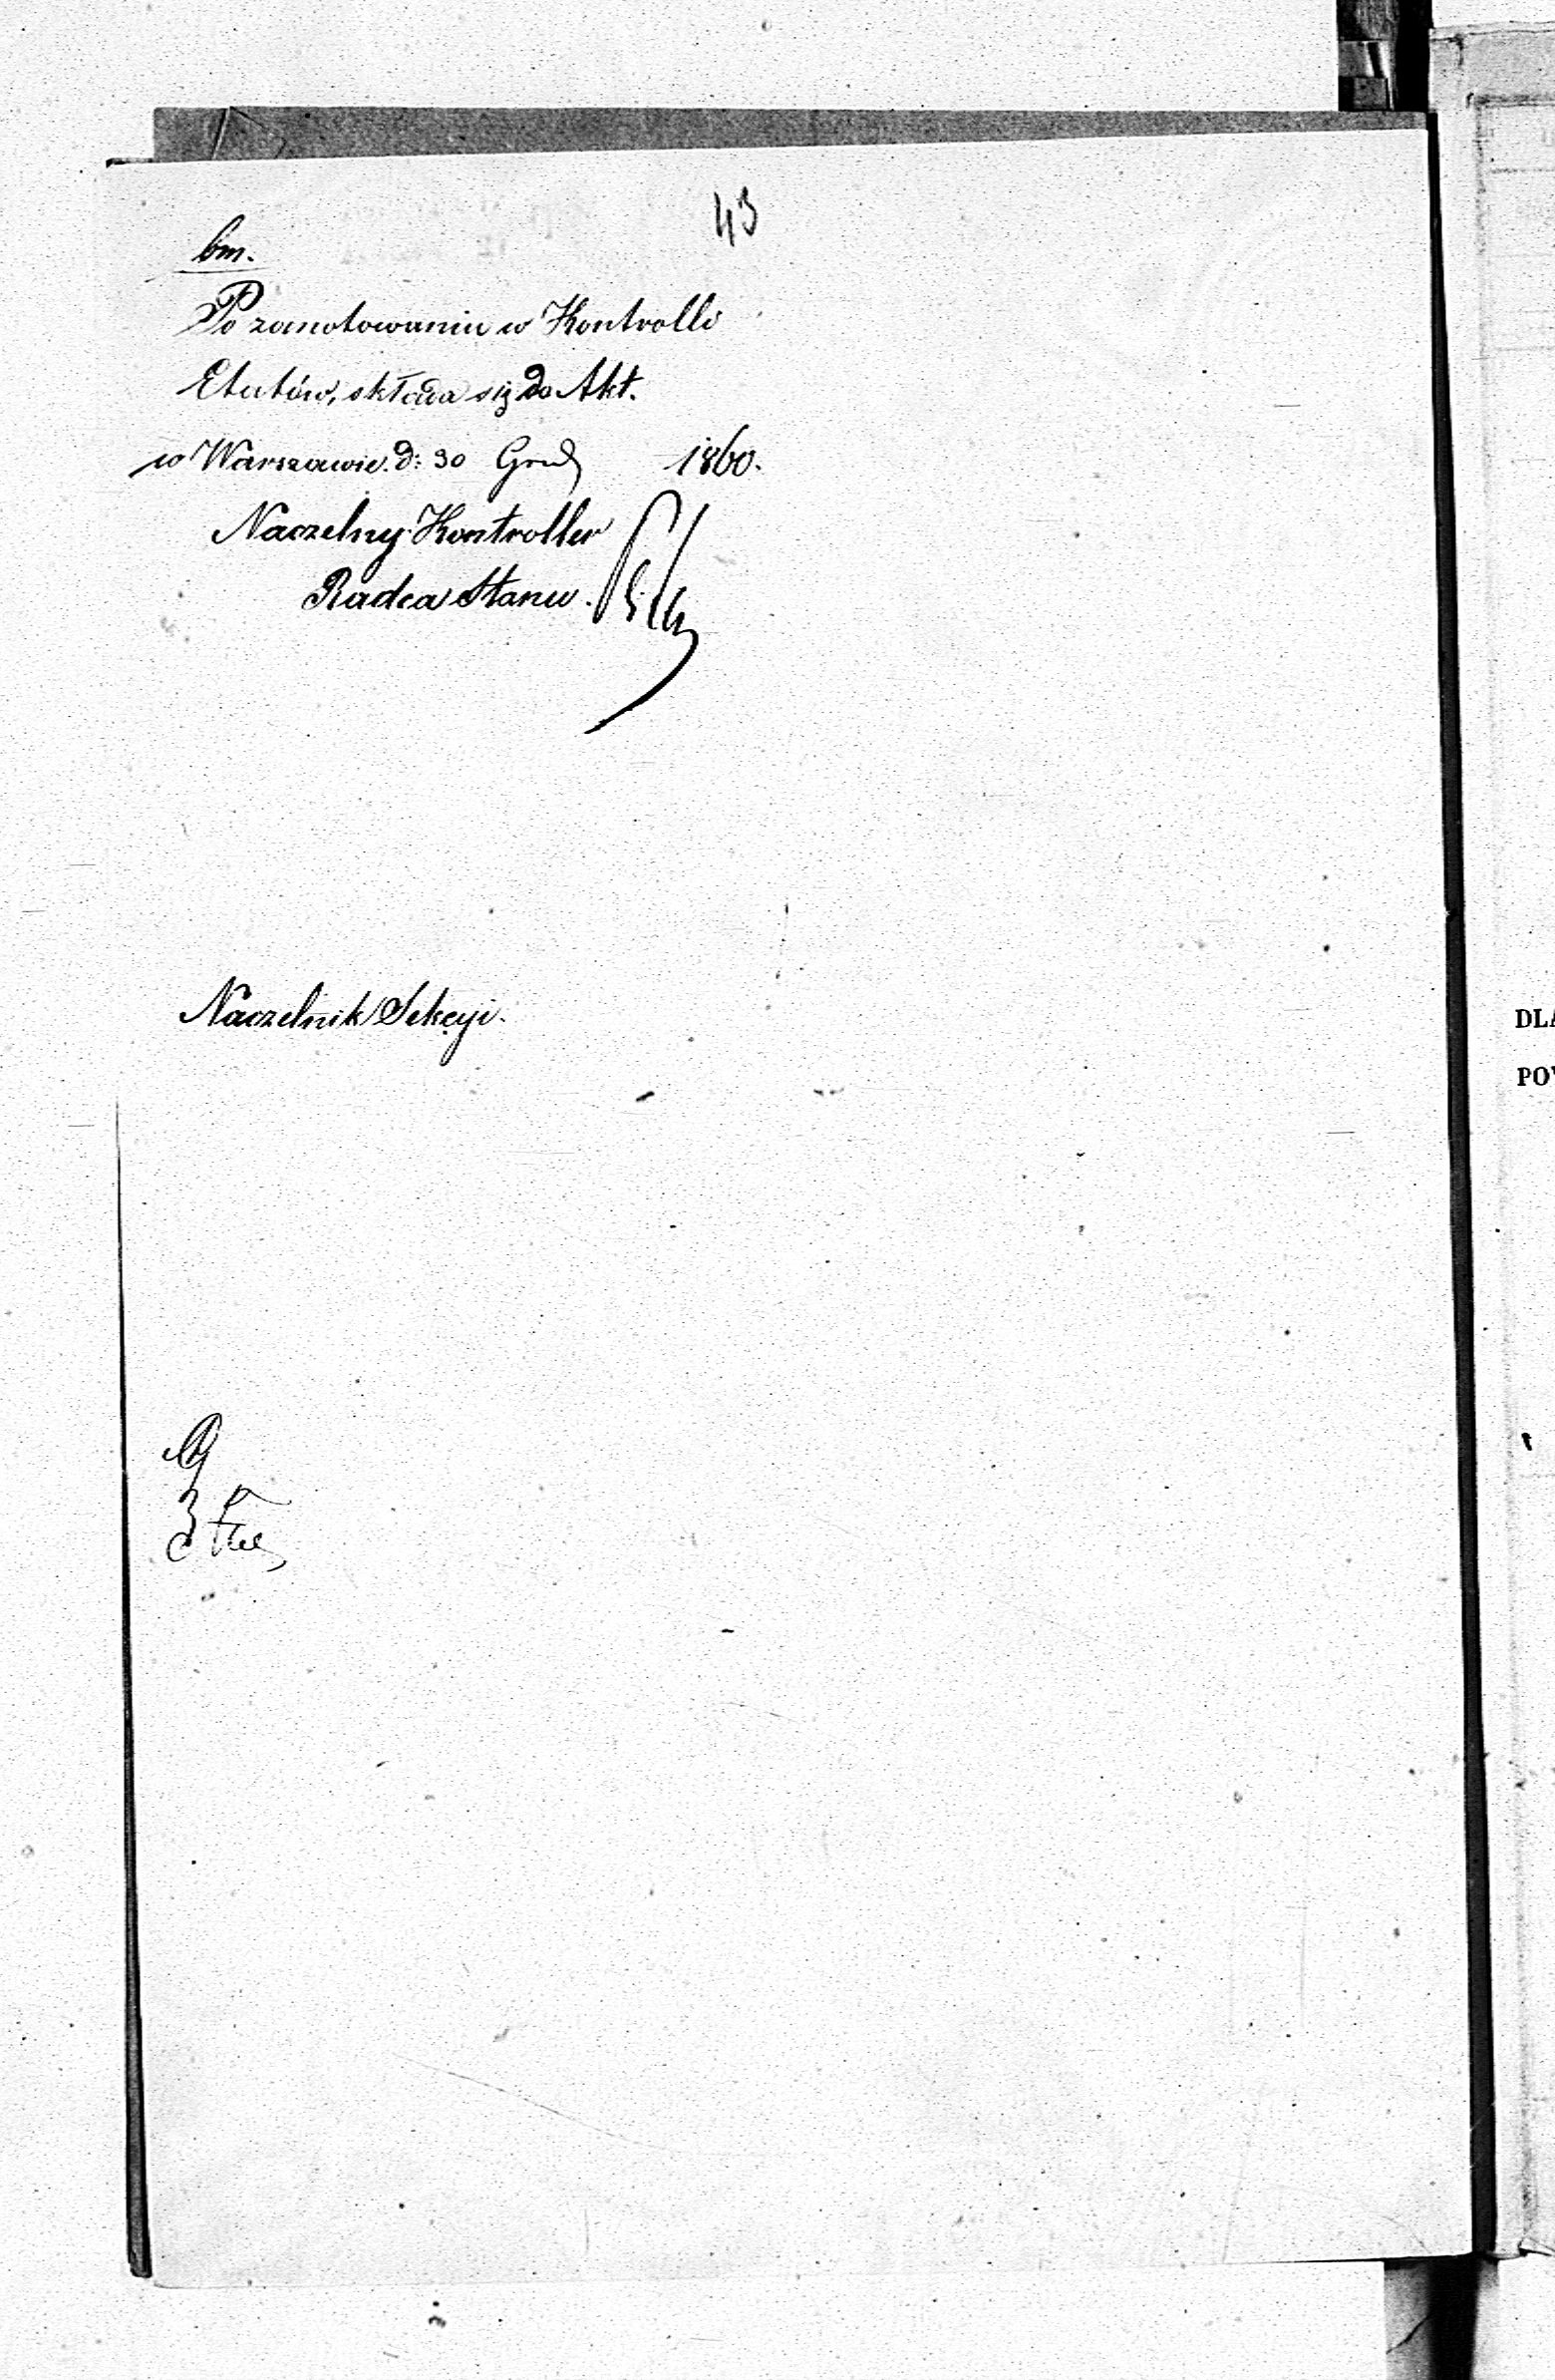 43
bm.
Po zanotowaniu w Kontrolli
Etatów, składa się do Akt.
w Warszawie d: 30 Grud 1860.
Naczelny Kontroller
Radca Stanu.
Naczelnik Sekcyi.
DLA
POW